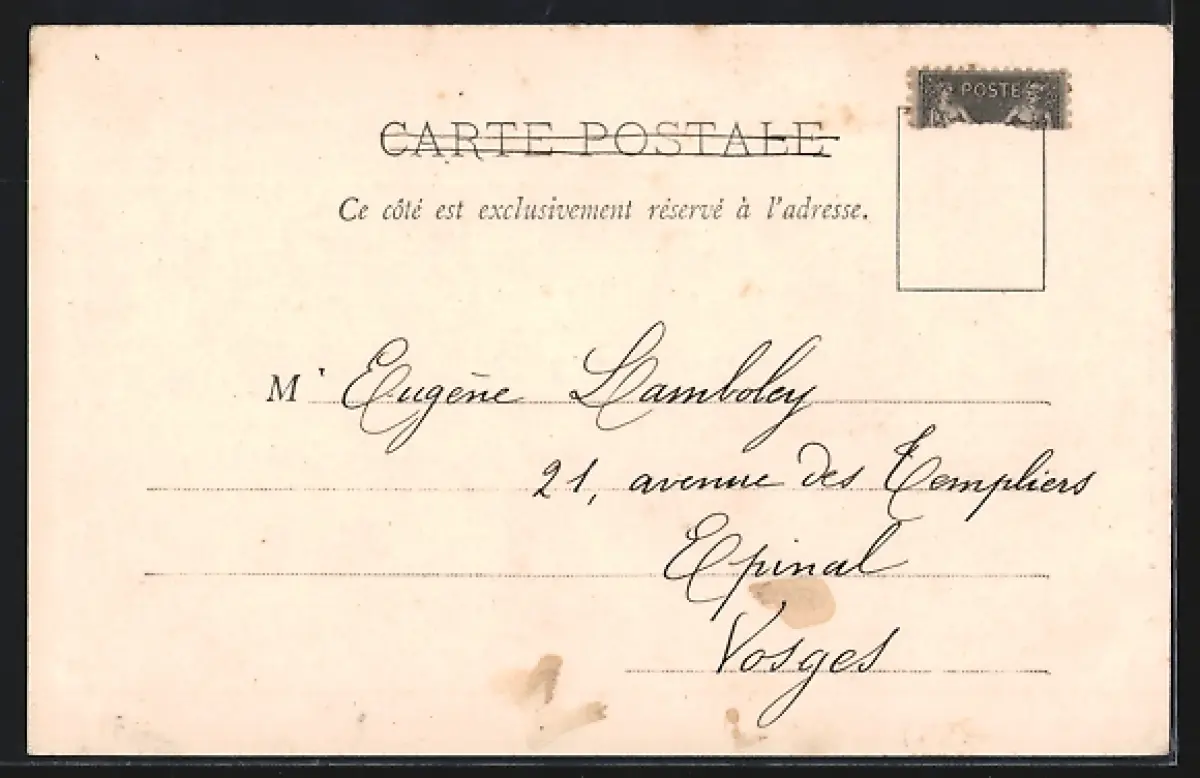 POSTE
CARTE POSTALE
Ce côté est exclusivement réservé à l'adresse.
M' Eugène Lamboley
21, avenue des Templiers
Epinal
Vosges